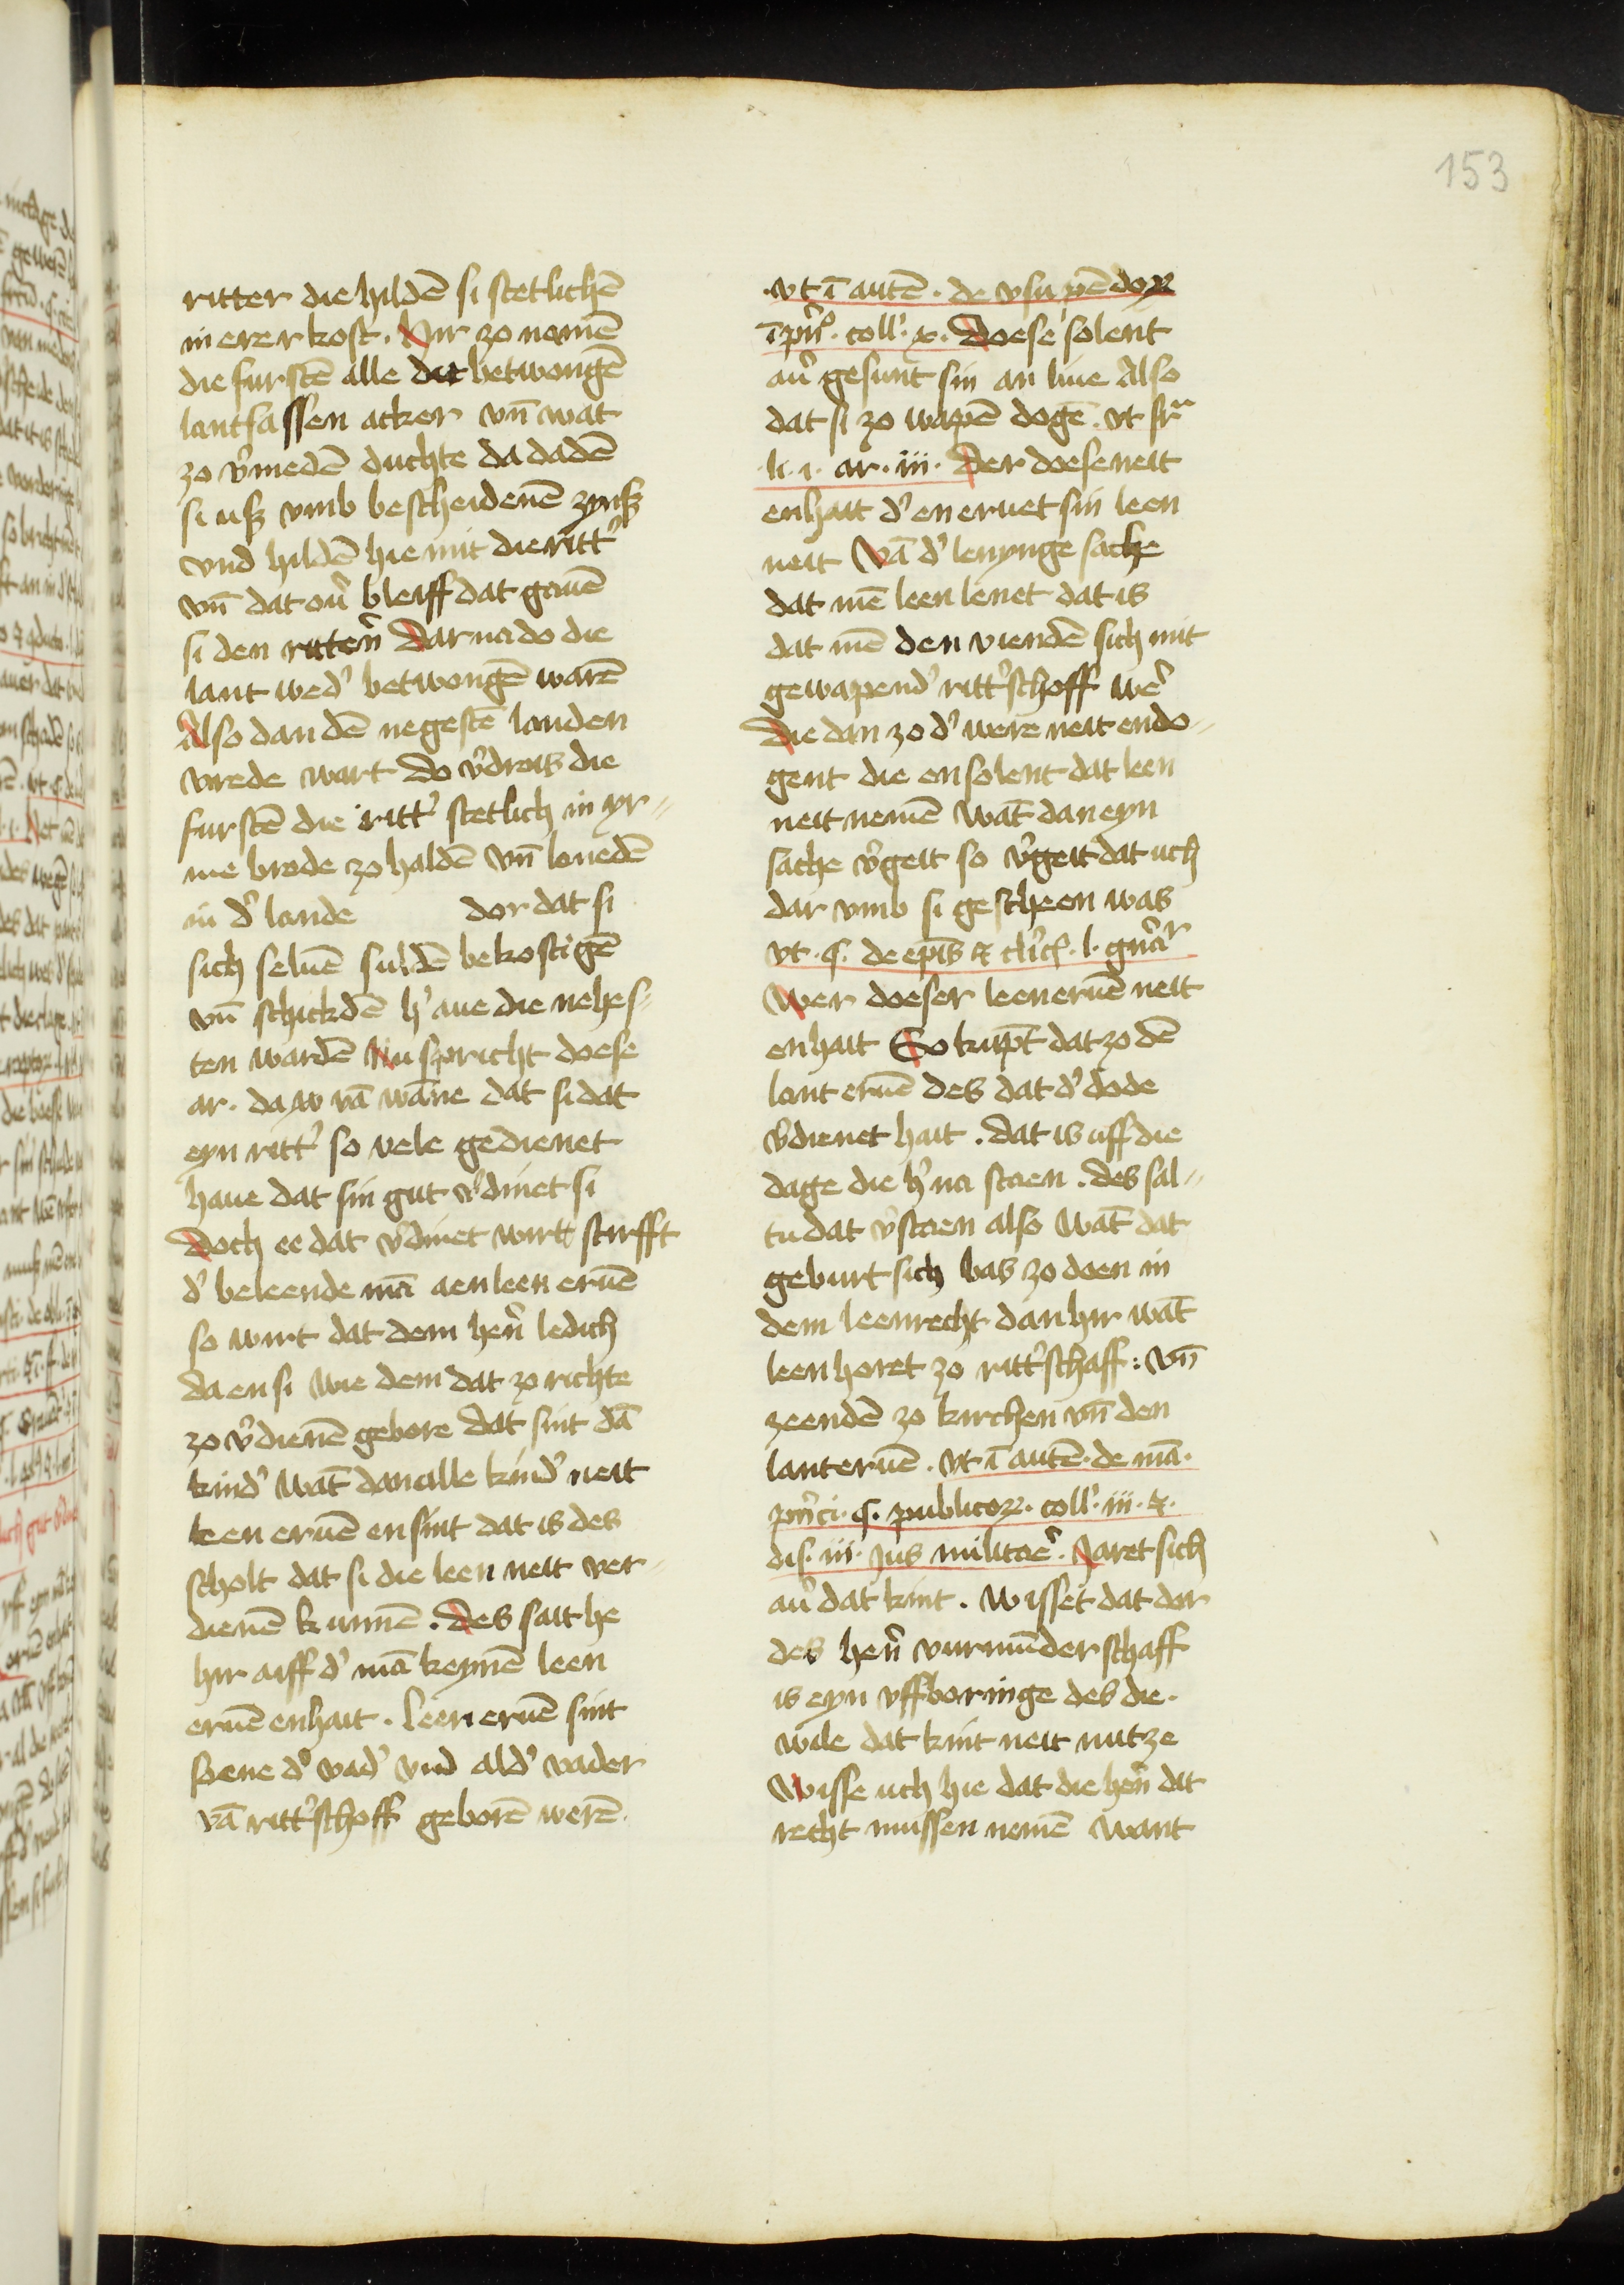 153
ritter die hildē si stetlichē
in erer kost. Hir zo nomē
die furstē alle dit betwongē
lantsassen acker vn̄ wat
zo v̓medē duchte da dadē
si uſz vmb bescheidenē zynſz
vnd hildē hie mit die ritt̓
vn̄ dat ou̓ bleiff dat gauē
si den rittern̄ Darna do die
lant wed̓ betwongē warē
Also dan dē negestē landen
vrede wart do v̓drois die
furstē die ritt̓ stetlich in yr⸗
me brode zo haldē vn̄ louedē
in d̓ lande dor dat si
sich seluē suldē bekostigē
vn̄ schicktē h̓ aue die nehes⸗
ten wardē Nu spricht doese
ar. da w vā wāne dat si dat
eyn ritt̓ so vele gedienet
haue dat sin gut v̓dinet si
Doch ee dat v̓dinet wirt stirfft
d̓ beleende mā aen leen eruē
so wirt dat dem hen̄ ledich
da en si wie dem dat zo richte
zo v̓dienē gebore Dat sint dā
kind̓ Wāt dan alle kind̓ neit
leen eruē en sint dat is des
scholt dat si die leen neit ver⸗
dienē kunnē. Des sait he
hir aiff d̓ mā keynē leen
eruē enhait. Leen eruē sint
soene d̓ vad̓ vnd ald̓ vader
vā ritt̓schoff geborē werē.
.vt ī autē. de vsu pēdoꝝ
ī pn̄. coll̓. x. Doese solent
au̓ gesunt sin an liue Also
dat si zo wapē dogē. vt sr̄
li. i. ar. iii. Der doese neit
enhait d̓ en eruet sin leen
neit Vā d̓ lenynge sache
dat mē leen lenet dat is
dat mē den viendē sich mit
gewapend̓ ritt̓schoff we̓
Die dan zo d̓ were neit endo⸗
gent die en solent dat leen
neit nemē Wāt dan eyn
sache v̓geit so v̓geit dat uch
dar vmb si gescheen was
vt. ꞔ. de ep̄is et cl̓icꝭ. l. gn̓a
Wer doeser leen eruē neit
enhait So kūpt dat zo dē
lant eruē des dat d̓ dode
v̓dienet hait. dat is uff die
dage die h̓ na staen. des sal⸗
tu dat v̓staen also Wāt dat
geburt sich bas zo doen in
dem leenrecht dan hir wāt
leen horet zo ritt̓schaff: vn̄
zeendē zo kirchen vn̄ den
lanteruē. vt ī autē. de mā.
pn̄ci. ꞔ. publicoꝝ. coll̓. iii. et.
dis. iii. Jus militare̓. Jaret sich
au̓ dat kint. Wisset dat dar
des hen̄ vurmūderschaff
is eyn vffboringe des die.
wile dat kint neit nutze
Wisse uch hie dat die hen̄ dit
recht mussen nemē Want